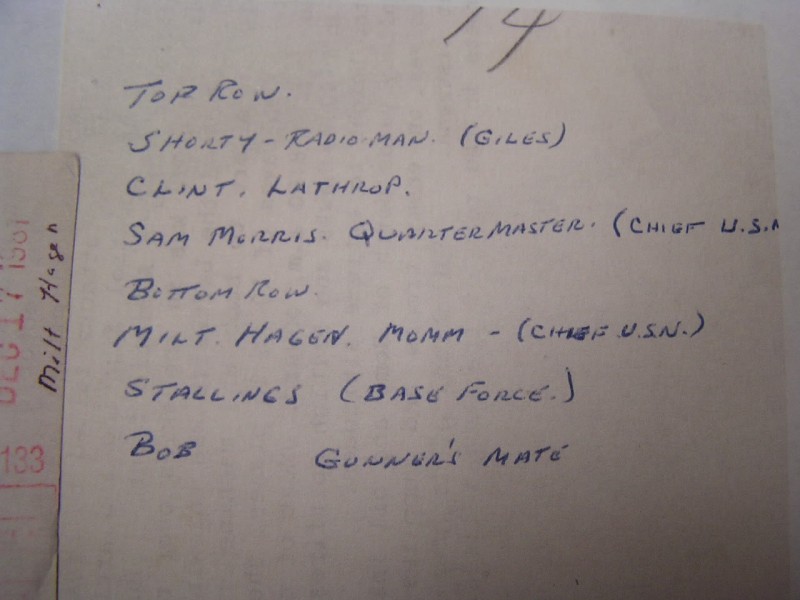 14
TOP ROW.
SHORTY - RADIOMAN. (GILES)
CLINT. LATHROP.
SAM MORRIS. QUARTERMASTER. (CHIEF U.S.N
BOTTOM ROW.
MILT. HAGEN. MOMM - (CHIEF U.S.N.)
STALLINGS (BASE FORCE.)
BOB GUNNER'S MATE
Milt Hagen
DEC 17 1981
133